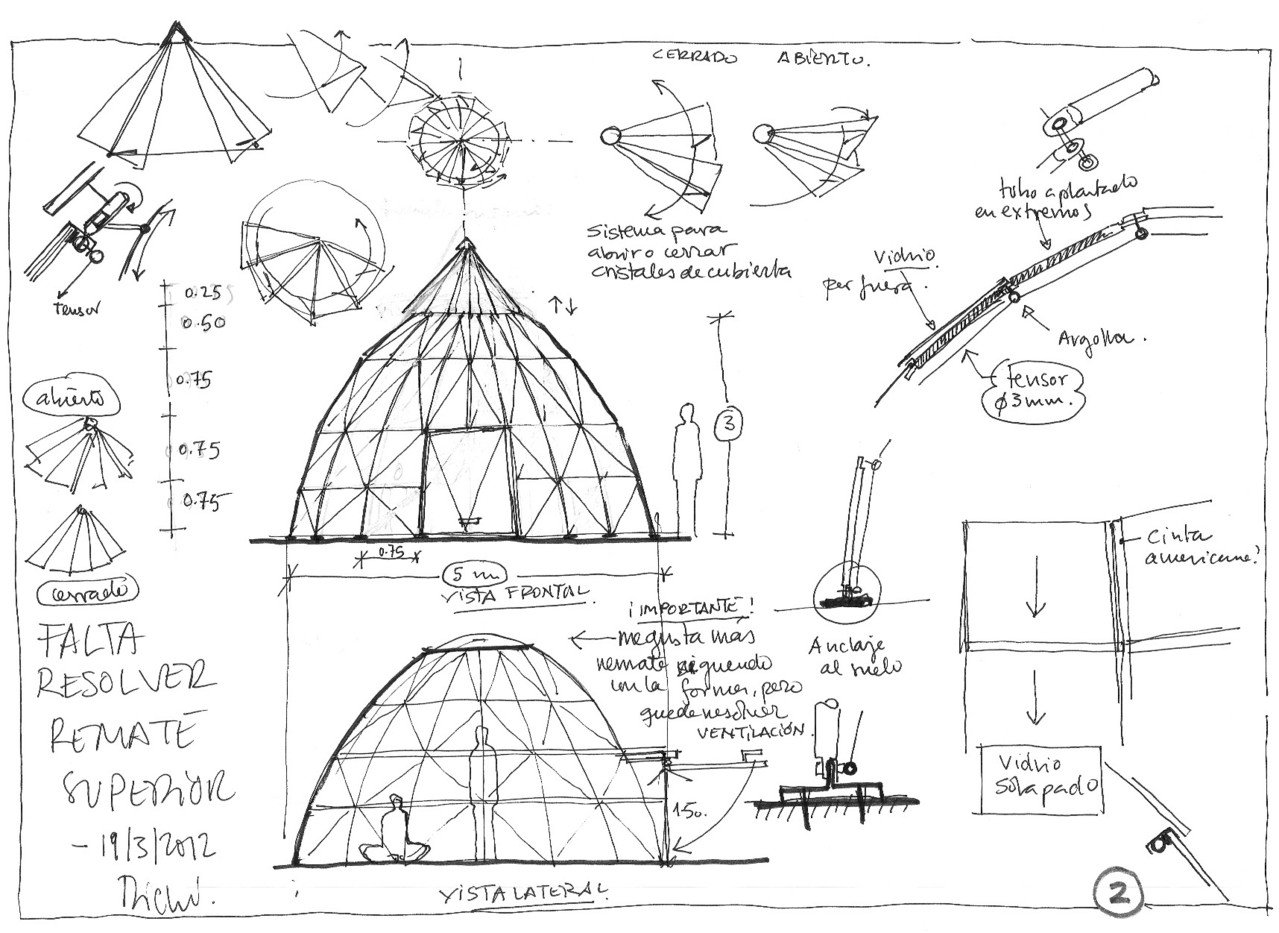 CERRADO ABIERTO.
Sistema para
abrir o cerrar
cristales de cubierta
tubo aplantado
en extremos
Vidrio
por fuera.
Argolla.
tensor
ø3mm.
tensor
0.25
0.50
0.75
0.75
0.75
abierto
cerrado
3
0.75
5 m
VISTA FRONTAL.
¡IMPORTANTE!
me gusta más
remate siguiendo
con la forma, pero
VENTILACIÓN.
Anclaje
al suelo
Cinta
americana?
Vidrio
solapado
FALTA
RESOLVER
REMATE
SUPERIOR
- 19/3/2012
1.50.
VISTA LATERAL.
2